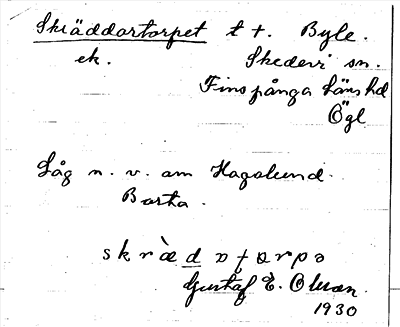 Skräddartorpet t t. Byle.
ek. Skedevi sn.
Finspånga läns hd
Ögl
Låg n. v. om Hagalund.
Borta.
skrædatɔrpə
Gustaf E. Olsson.
1930